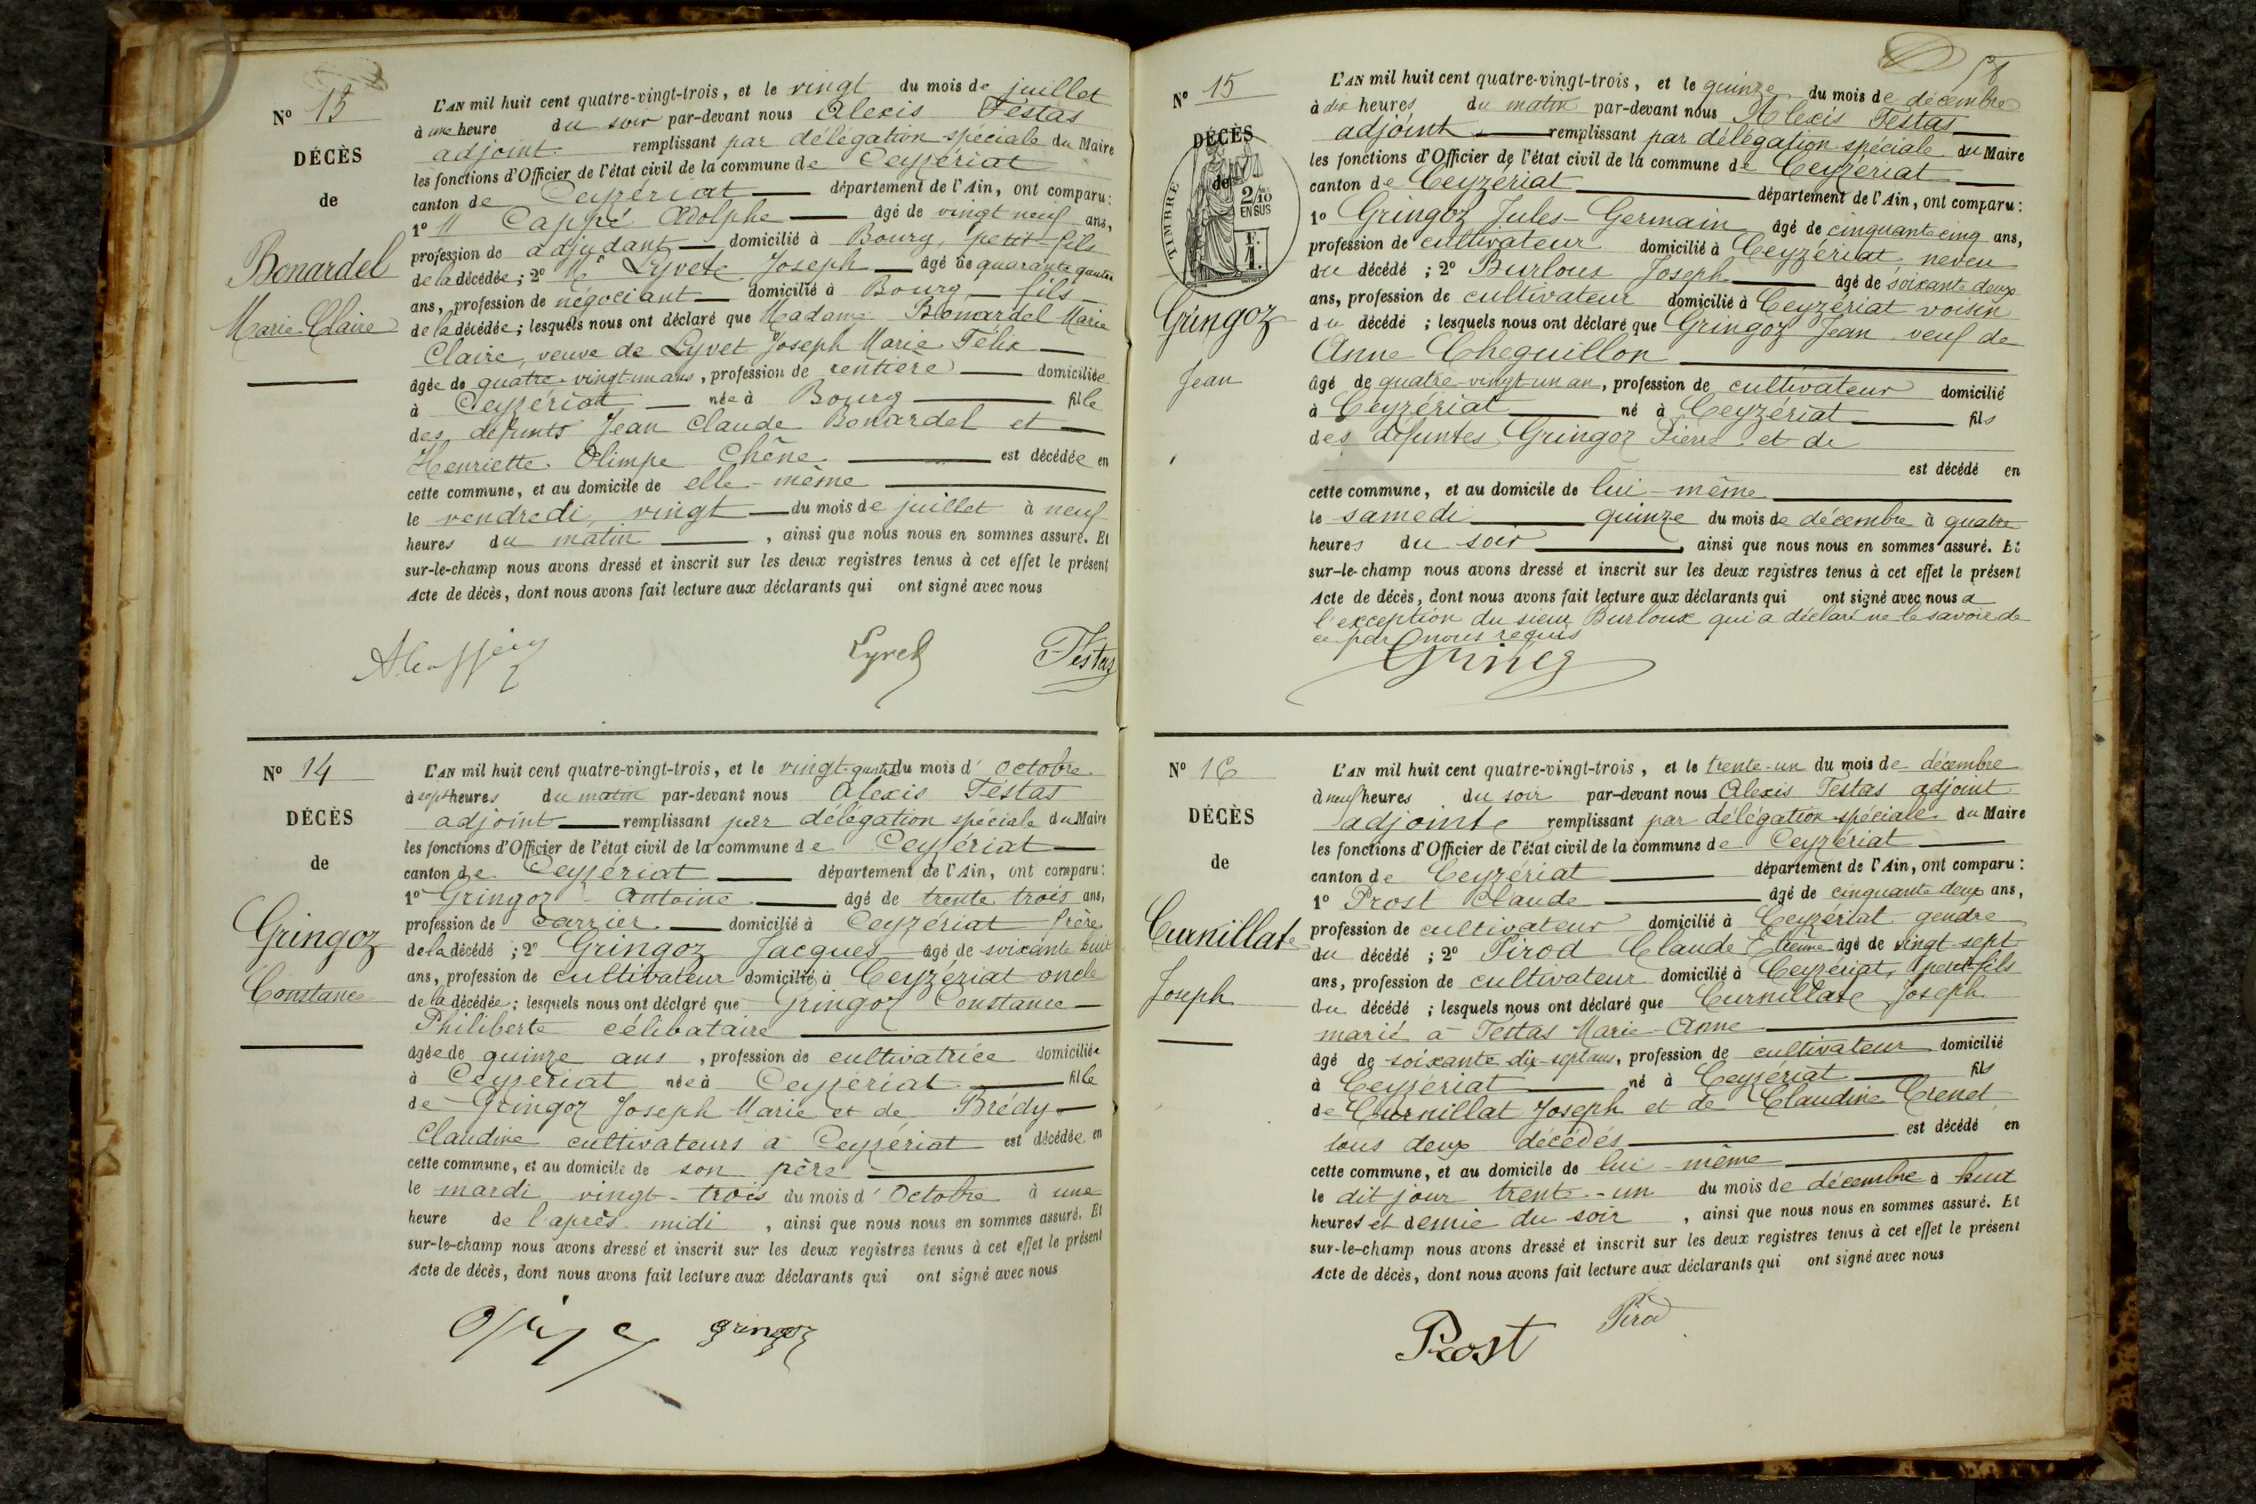 Nº 13
DÉCÈS
de
Bonardel
Marie Claire
L'AN mil huit cent quatre-vingt-trois, et le vingt du mois de juillet
à une heure du soir par-devant nous Alexis Testas
adjoint remplissant par délégation spéciale du Maire
les fonctions d'Officier de l'état civil de la commune de Ceyzériat
canton de Ceyzériat département de l'Ain, ont comparu:
1º Mr Cappé Adolphe âgé de vingt neuf ans,
profession de adjudant domicilié à Bourg, petit-fils
de la décédée; 2º Lyvet Joseph âgé de quarante quatre
ans, profession de négociant domicilié à Bourg fils
de la décédée; lesquels nous ont déclaré que Madame Bonardel Marie
Claire, veuve de Lyvet Joseph Marie Félix
âgée de quatre-vingt-un ans, profession de rentière domiciliée
à Ceyzériat née à Bourg fille
des défunts Jean Claude Bonardel et
Henriette Olimpe Chêne est décédée en
cette commune, et au domicile de elle-même
le vendredi, vingt du mois de juillet à neuf
heures du matin, ainsi que nous nous en sommes assuré. Et
sur-le-champ nous avons dressé et inscrit sur les deux registres tenus à cet effet le présent
Acte de décès, dont nous avons fait lecture aux déclarants qui ont signé avec nous
Lyvet Testas
Nº 14
DÉCÈS
de
Gringoz
Constance
L'AN mil huit cent quatre-vingt-trois, et le vingt-quatre du mois d'octobre
à sept heures du matin par-devant nous Alexis Testas
adjoint remplissant par délégation spéciale du Maire
les fonctions d'Officier de l'état civil de la commune de Ceyzériat
canton de Ceyzériat département de l'Ain, ont comparu:
1º Gringoz Antoine âgé de trente trois ans,
profession de carrier domicilié à Ceyzériat frère
de la décédé; 2º Gringoz Jacques âgé de soixante huit
ans, profession de cultivateur domicilié à Ceyzériat oncle
de la décédée; lesquels nous ont déclaré que Gringoz Constance
Philiberte célibataire
âgée de quinze ans, profession de cultivatrice domiciliée
à Ceyzériat née à Ceyzériat fille
de Gringoz Joseph Marie et de Brédy
Claudine cultivateurs à Ceyzériat est décédée en
cette commune, et au domicile de son père
le mardi vingt-trois du mois d'Octobre à une
heure de l'après midi, ainsi que nous nous en sommes assuré. Et
sur-le-champ nous avons dressé et inscrit sur les deux registres tenus à cet effet le présent
Acte de décès, dont nous avons fait lecture aux déclarants qui ont signé avec nous
gringoz
Nº 15
DÉCÈS
de
TIMBRE
2/10
EN SUS
Gringoz
Jean
L'AN mil huit cent quatre-vingt-trois, et le quinze du mois de décembre
à dix heures du matin par-devant nous Alexis Testas
adjoint remplissant par délégation spéciale du Maire
les fonctions d'Officier de l'état civil de la commune de Ceyzériat
canton de Ceyzériat département de l'Ain, ont comparu:
1º Gringoz Jules-Germain âgé de cinquante cinq ans,
profession de cultivateur domicilié à Ceyzériat neveu
du décédé; 2º Burlous Joseph âgé de soixante deux
ans, profession de cultivateur domicilié à Ceyzériat voisin
du décédé; lesquels nous ont déclaré que Gringoz Jean veuf de
Anne Cheguillon
âgé de quatre-vingt-un an, profession de cultivateur domicilié
à Ceyzériat né à Ceyzériat fils
des défuntes Gringoz Pierre et de
est décédé en
cette commune, et au domicile de lui-même
le samedi quinze du mois de décembre à quatre
heures du soir, ainsi que nous nous en sommes assuré. Et
sur-le-champ nous avons dressé et inscrit sur les deux registres tenus à cet effet le présent
Acte de décès, dont nous avons fait lecture aux déclarants qui ont signé avec nous a
l'exception du sieur Burloux qui a déclaré ne le savoir de
ce par nous requis
Gring
Nº 16
DÉCÈS
de
Curnillate
Joseph
L'AN mil huit cent quatre-vingt-trois, et le trente-un du mois de décembre
à neuf heures du soir par-devant nous Alexis Testas adjoint
adjoint remplissant par délégation spéciale du Maire
les fonctions d'Officier de l'état civil de la commune de Ceyzériat
canton de Ceyzériat département de l'Ain, ont comparu:
1º Prost Claude âgé de cinquante deux ans,
profession de cultivateur domicilié à Ceyzériat gendre
du décédé; 2º Pirod Claude Etienne âgé de vingt-sept
ans, profession de cultivateur domicilié à Ceyzériat, petit-fils
du décédé; lesquels nous ont déclaré que Curnillate Joseph
marié à Testas Marie-Anne
âgé de soixante dix-sept ans, profession de cultivateur domicilié
à Ceyzériat né à Ceyzériat fils
de Curnillat Joseph et de Claudine Crenet
tous deux décédés est décédé en
cette commune, et au domicile de lui-même
le dit jour trente-un du mois de décembre à huit
heures et demie du soir, ainsi que nous nous en sommes assuré. Et
sur-le-champ nous avons dressé et inscrit sur les deux registres tenus à cet effet le présent
Acte de décès, dont nous avons fait lecture aux déclarants qui ont signé avec nous
Prost Pirod